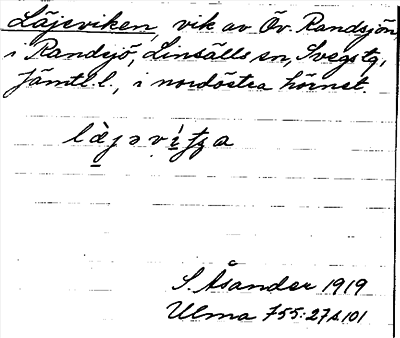 Läjeviken, vik av Öv. Randsjön
i Randsjö, Linsälls sn, Svegs tg,
Jämtl. l., i nordöstra hörnet.
S. Åsander 1919
Ulma 755:27 s. 101